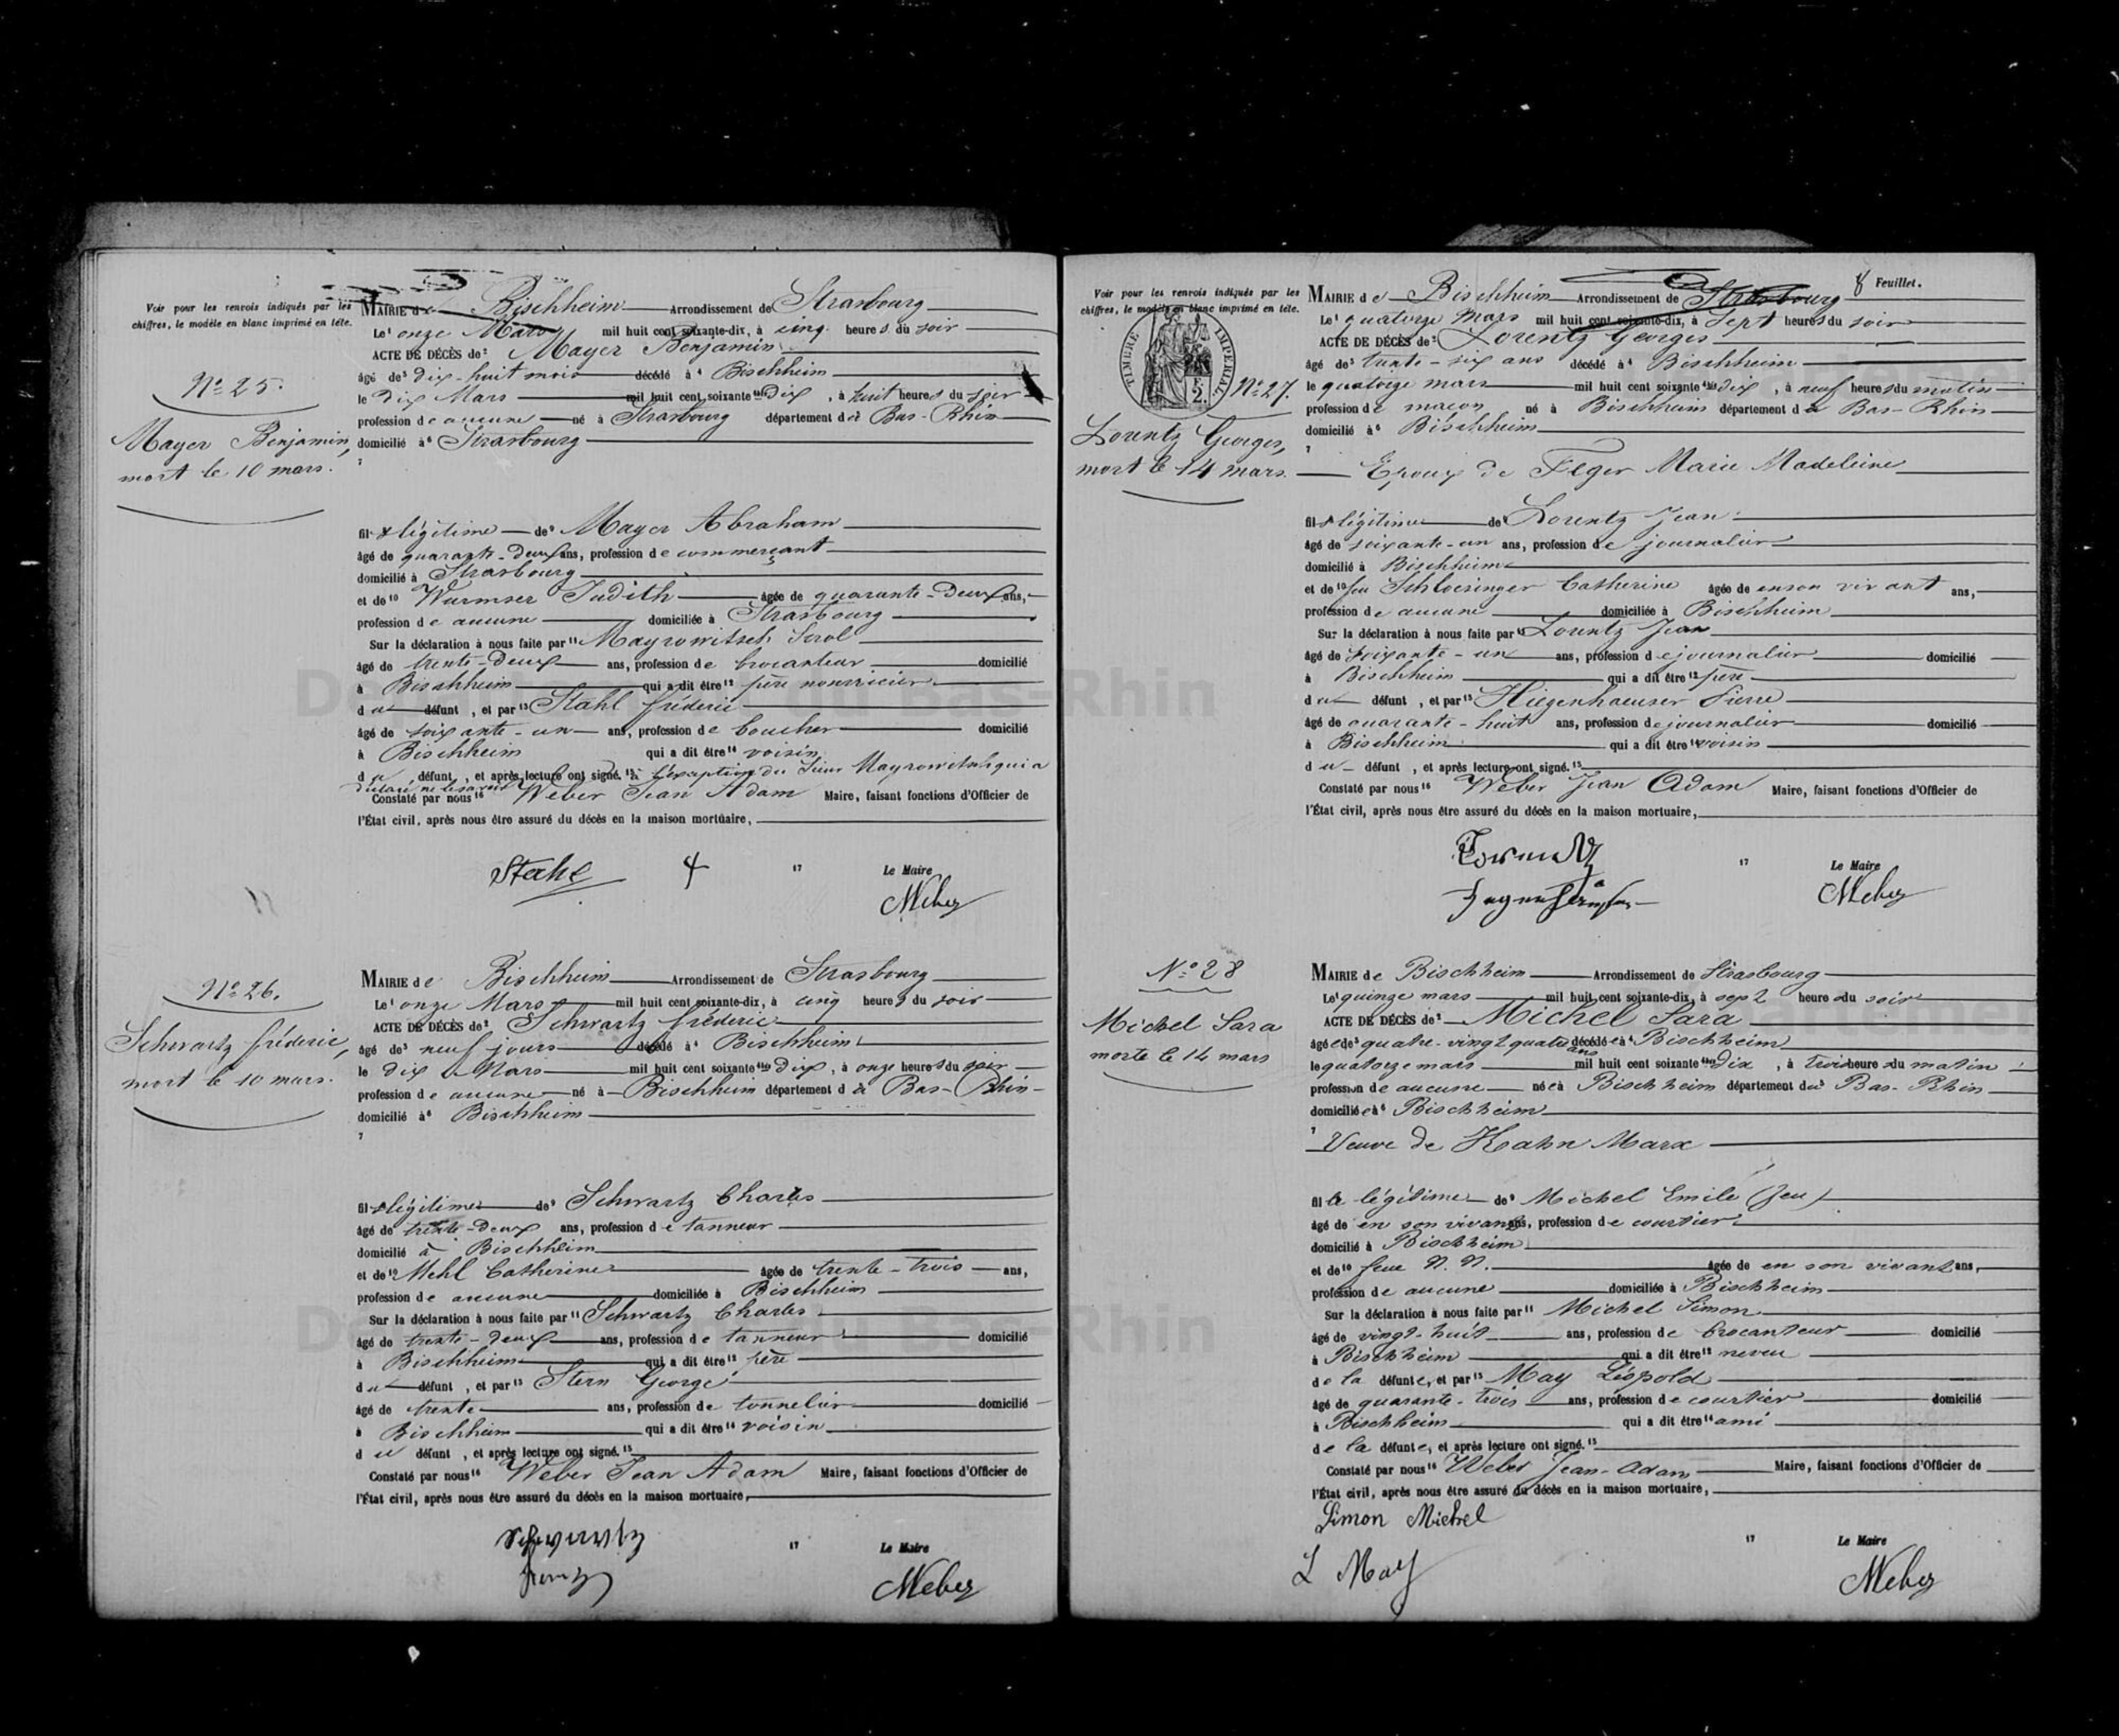 Voir pour les renvois indiqués par les
chiffres, le modèle en blanc imprimé en tête.
MAIRIE de Bischheim Arrondissement de Strasbourg
Le¹ onze Mars mil huit cent soixante-dix, à cinq heures du soir
ACTE DE DÉCÈS de² Mayer Benjamin
âgé de³ dix-huit mois décédé à⁴ Bischheim
le dix Mars mil huit cent soixante dix, à huit heures du soir
profession de aucune né à Strasbourg département du Bas-Rhin
domicilié à⁶ Strasbourg
7
N° 25.
Mayer Benjamin,
mort le 10 mars.
fils légitime de⁸ Mayer Abraham
âgé de quarante-deux ans, profession de commerçant
domicilié à Strasbourg
et de¹⁰ Wurmser Judith âgée de quarante-deux ans,
profession de aucune domiciliée à Strasbourg
Sur la déclaration à nous faite par¹¹ Mayrowitsch
âgé de trente-deux ans, profession de brocanteur domicilié
à Bischheim qui a dit être¹² père nourricier
du défunt, et par¹³ Stahl fréderic
âgé de soixante-un ans, profession de boucher domicilié
à Bischheim qui a dit être¹⁴ voisin
du défunt, et après lecture ont signé.¹⁵ à l'exception du Sieur Mayrowitsch qui a
déclaré ne le savoir
Constaté par nous¹⁶ Weber Jean Adam Maire, faisant fonctions d'Officier de
l'État civil, après nous être assuré du décès en la maison mortuaire,
Stahl 17 Le Maire
Weber
N° 26.
Schwartz fréderic,
mort le 10 mars.
MAIRIE de Bischheim Arrondissement de Strasbourg
Le¹ onze Mars mil huit cent soixante-dix, à cinq heures du soir
ACTE DE DÉCÈS de² Schwartz fréderic
âgé de³ neuf jours décédé à⁴ Bischheim
le dix Mars mil huit cent soixante dix, à onze heures du soir
profession de aucune né à Bischheim département du Bas-Rhin
domicilié à⁶ Bischheim
7
fils légitime de⁸ Schwartz Charles
âgé de trente-deux ans, profession de tanneur
domicilié à Bischheim
et de¹⁰ Mehl Catherine âgée de trente-trois ans,
profession de aucune domiciliée à Bischheim
Sur la déclaration à nous faite par¹¹ Schwartz Charles
âgé de trente-deux ans, profession de tanneur domicilié
à Bischheim qui a dit être¹² père
du défunt, et par¹³ Stern George
âgé de trente ans, profession de tonnelier domicilié
à Bischheim qui a dit être¹⁴ voisin
du défunt, et après lecture ont signé.¹⁵
Constaté par nous¹⁶ Weber Jean Adam Maire, faisant fonctions d'Officier de
l'État civil, après nous être assuré du décès en la maison mortuaire,
Schwartz 17 Le Maire
Weber
8 Feuillet.
Voir pour les renvois indiqués par les
chiffres, le modèle en blanc imprimé en tête.
TIMBRE IMPERIAL
F. 2.
N° 27.
Lorentz Georges,
mort le 14 mars.
MAIRIE de Bischheim Arrondissement de Strasbourg
Le¹ quatorze Mars mil huit cent soixante-dix, à sept heures du soir
ACTE DE DÉCÈS de² Lorentz Georges
âgé de³ trente-six ans décédé à⁴ Bischheim
le quatorze mars mil huit cent soixante dix, à neuf heures du matin
profession de maçon né à Bischheim département du Bas-Rhin
domicilié à⁶ Bischheim
7
Epoux de Feger Marie Madeleine
fils légitime de Lorentz Jean
âgé de soixante-un ans, profession de journalier
domicilié à Bischheim
et de¹⁰ feu Schloesinger Catherine âgée de en son vivant ans,
profession de aucune domiciliée à Bischheim
Sur la déclaration à nous faite par¹¹ Lorentz Jean
âgé de soixante-un ans, profession de journalier domicilié
à Bischheim qui a dit être¹² père
du défunt, et par¹³ Hiegenhaeuser Pierre
âgé de quarante-huit ans, profession de journalier domicilié
à Bischheim qui a dit être¹⁴ voisin
du défunt, et après lecture ont signé.¹⁵
Constaté par nous¹⁶ Weber Jean Adam Maire, faisant fonctions d'Officier de
l'État civil, après nous être assuré du décès en la maison mortuaire,
Lorentz 17 Le Maire
Weber
N° 28
Michel Sara
morte le 14 mars
MAIRIE de Bischheim Arrondissement de Strasbourg
Le¹ quinze mars mil huit cent soixante-dix, à sept heures du soir
ACTE DE DÉCÈS de² Michel Sara
âgée de³ quatre-vingt quatre ans décédée à⁴ Bischheim
le quatorze mars mil huit cent soixante dix, à trois heures du matin
profession de aucune née à Bischheim département du Bas-Rhin
domiciliée à⁶ Bischheim
7
Veuve de Kahn Marx
fille légitime de⁸ Michel Emile (feu)
âgé de en son vivant ans, profession de courtier
domicilié à Bischheim
et de¹⁰ feue N. N. âgée de en son vivant ans,
profession de aucune domiciliée à Bischheim
Sur la déclaration à nous faite par¹¹ Michel Simon
âgé de vingt-huit ans, profession de brocanteur domicilié
à Bischheim qui a dit être¹² neveu
de la défunte, et par¹³ May Léopold
âgé de quarante-trois ans, profession de courtier domicilié
à Bischheim qui a dit être¹⁴ ami
de la défunte, et après lecture ont signé.¹⁵
Constaté par nous¹⁶ Weber Jean-Adam Maire, faisant fonctions d'Officier de
l'État civil, après nous être assuré du décès en la maison mortuaire,
Simon Michel
17 Le Maire
L May
Weber